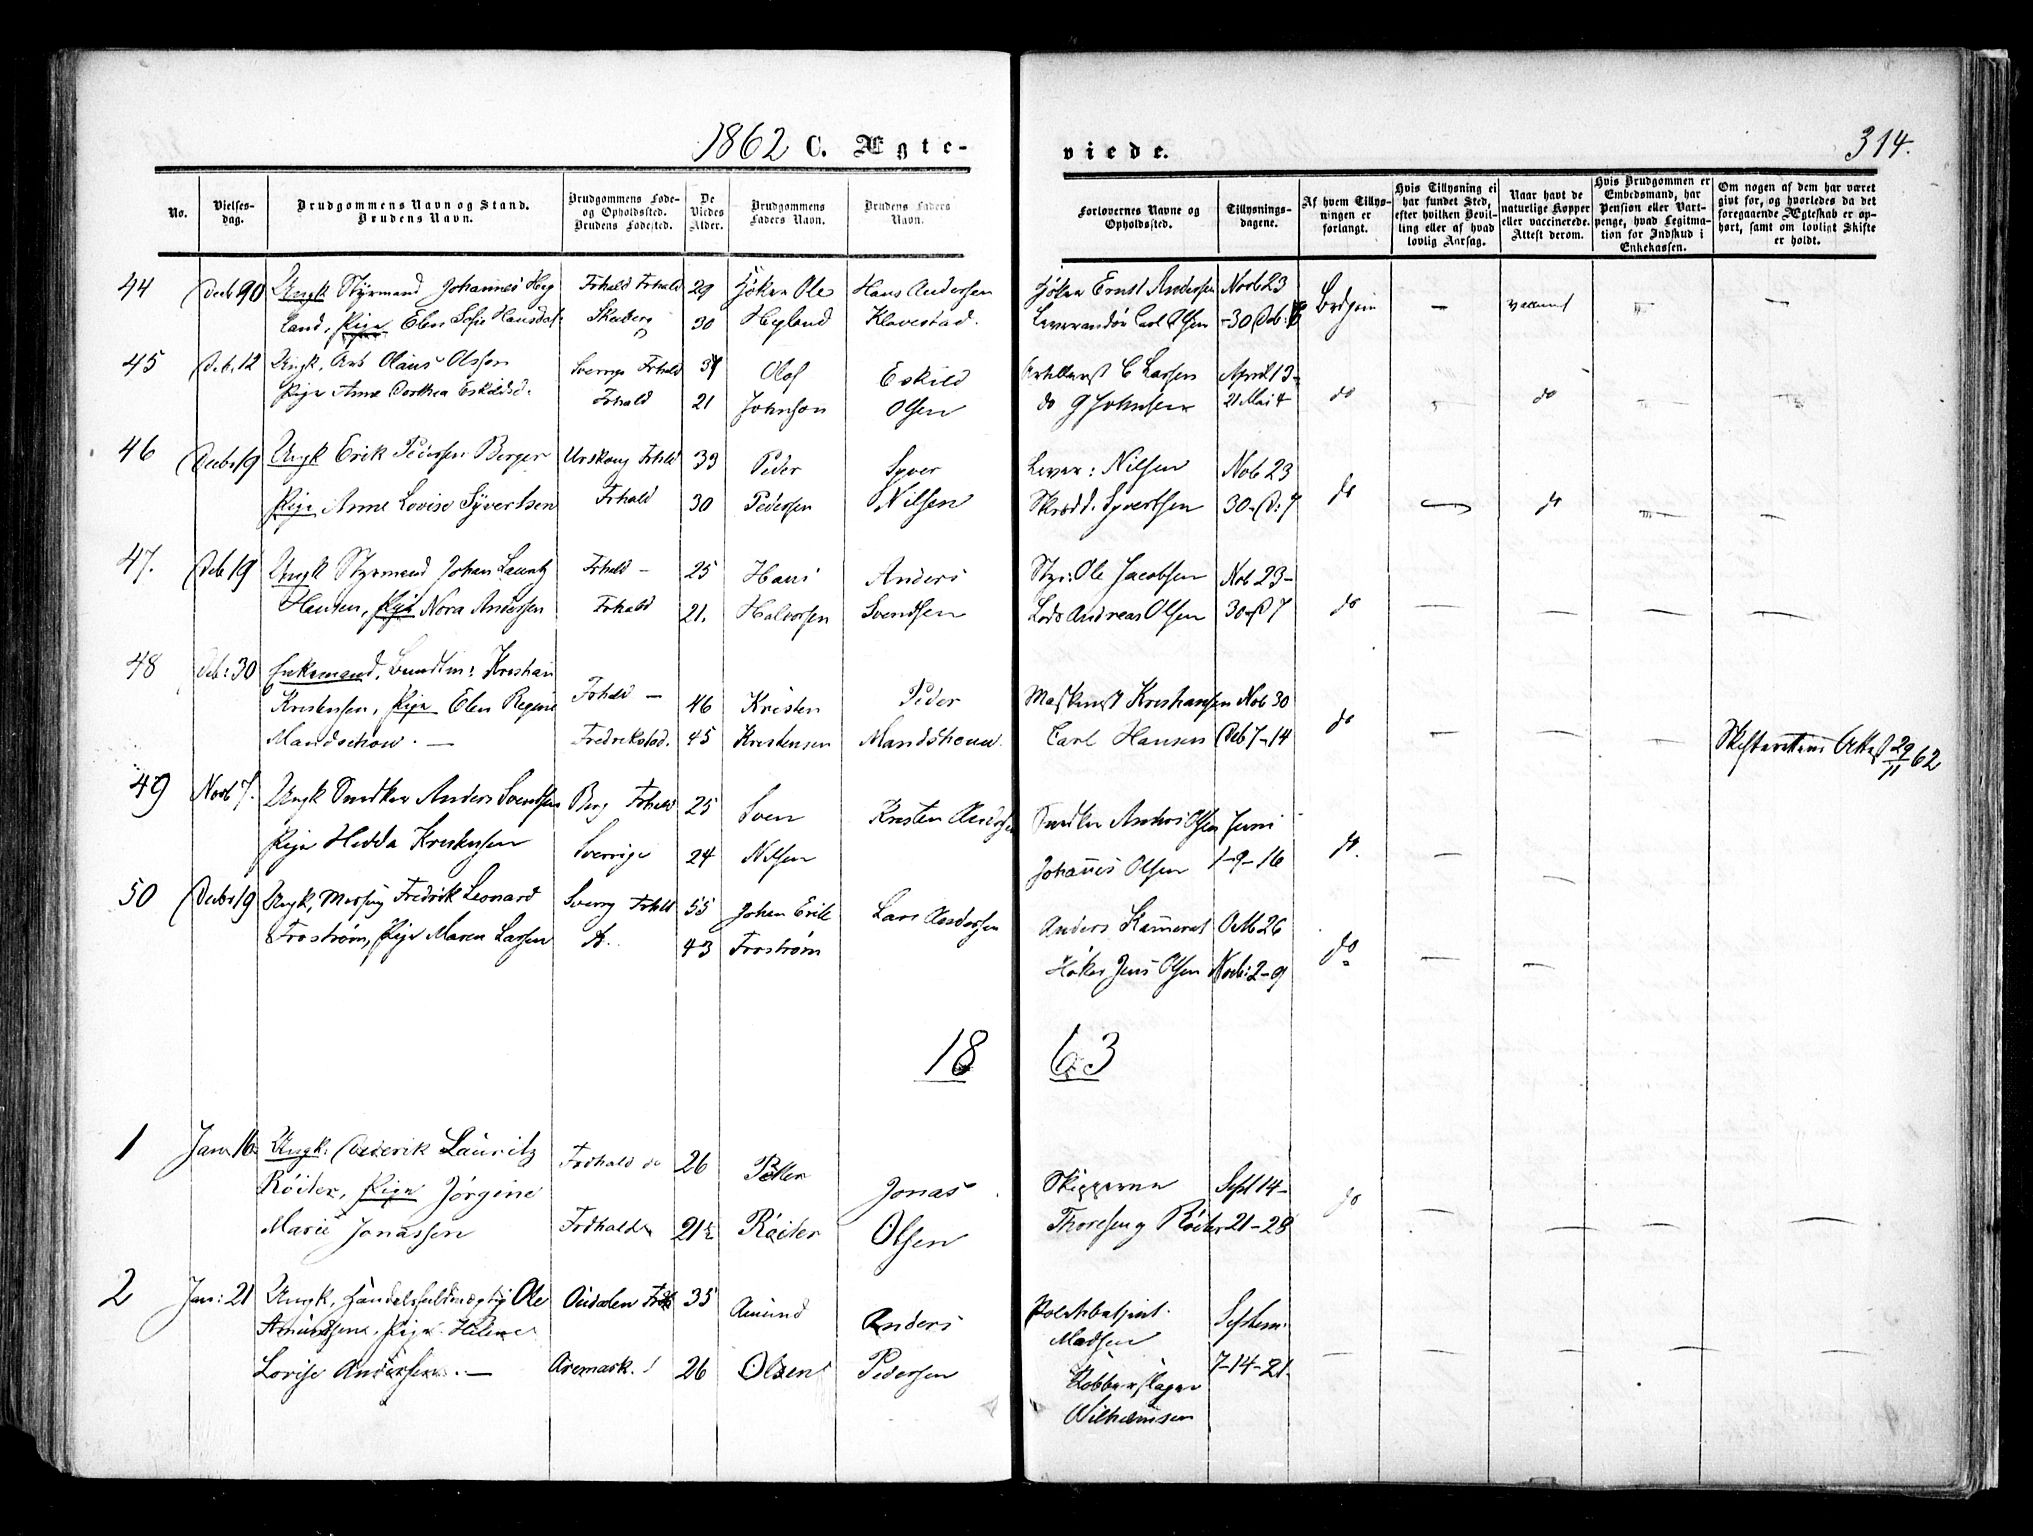 1862 C. Ægte-
viede.
314.
No.
Vielses-
dag.
Brudgommens Navn og Stand.
Brudens Navn.
Brudgommens Føde-
og Opholdssted.
Brudens Fødested.
De
Viedes
Alder.
Brudgommens
Faders Navn.
Brudens Faders
Navn.
Forlovernes Navne og
Opholdssted.
Tillysnings-
dagene.
Af hvem Tillys-
ningen er
forlangt.
Hvis Tillysning ei
har fundet Sted,
efter hvilken Bevil-
ling eller af hvad
lovlig Aarsag.
Naar havt de
naturlige Kopper
eller vaccinerede.
Attest derom.
Hvis Brudgommen er
Embedsmand, har
Pension eller Vart-
penge, hvad Legitima-
tion for Indskud i
Enkekassen.
Om nogen af dem har været
givt for, og hvorledes da det
foregaaende Ægteskab er op-
hørt, samt om lovligt Skifte
er holdt.
44 Ungk Styrmand Johannes Høg Frhald Frhald 29 Høker Ole Hans Andersen Høker Ernst Andersen Novb 23
land, Pige Elen Sofie Hansdat. Skeberg 30 Høgland Klavestad. Leverandør Carl Olsen -30
45 Deb. 12 Ungk. Arb Olaus Olssen Sverrige Frhald Olof Eskild C Larsen April 13-
Pige Anne Dorthea Eskildsd. Frhald 21 Johnson Olsen do G Johnsen 21 Mai 4 do do
46 Decbr 19 Ungk Erik Pedersen Berger Urskoug Frhald 33 Peder Syver Lever: Nilsen Nob 23
Pige Anne Lovise Syvertsen Frhald 30 Pedersen Nilsen Skrædd. Syvertsen 30-D: 7 do do
47. Deb 19 Ungk Styrmand Johan Lauritz Frhald - 25 Hans Anders Styr: Ole Jacobsen Nob 23-
Hansen, Pige Nora Andersen Frhald 21. Halvorsen Svendsen Lods Andreas Olsen 30-D 7 do
48 Deb: 30 Enkemand, Kristian
Kristensen, Pige Elen Regine Frhald - 46 Kristen Peder Maskinist Kristiansen Nob 30
Mandschow. - Fredrikstad. 45 Kristensen Mandshouw. Carl Hansen Deb 7-14 do Skifterettens Attest 29/11 62
49 Novb 7. Ungk Snedker Anders Svendsen Berg Frhald 25 Sven Kristen Andersen Snedker Anders Olsen Juni
Pige Hedda Kristensen Sverrige 24 Nilsen Johannes Olsen 1-9-16 do.
50 Decbr 19 Ungk. Fredrik Leonard Sverrig Frhald 55 Johan Erik Lars Andersen Anders Kamerat Octb 26
Frostrøm, Pige Maren Larsen 43 Frostrøm Høker Jens Olsen Novb: 2-9 do
18 63
1 Janr 16 Ungk: Diderik Lauritz Frdhald do 26 Petter Jonas Skipperne Sept 14-
Røiter, Pige Jørgine
Marie Jonassen Frdhald 21½ Røiter Olsen Thoresen og Røiter 21-28 do
2 Jan: 21 Ungk, Handelsfuldmægtig Ole Frdh 35 Amund Anders Politibetjent Septem.
Amundsen. Pige. Helene Madsen
Lovise Andersen. - Aremark. 26 Olsen Pedersen Kobberslager 7-14-21.
Wilhelmsen